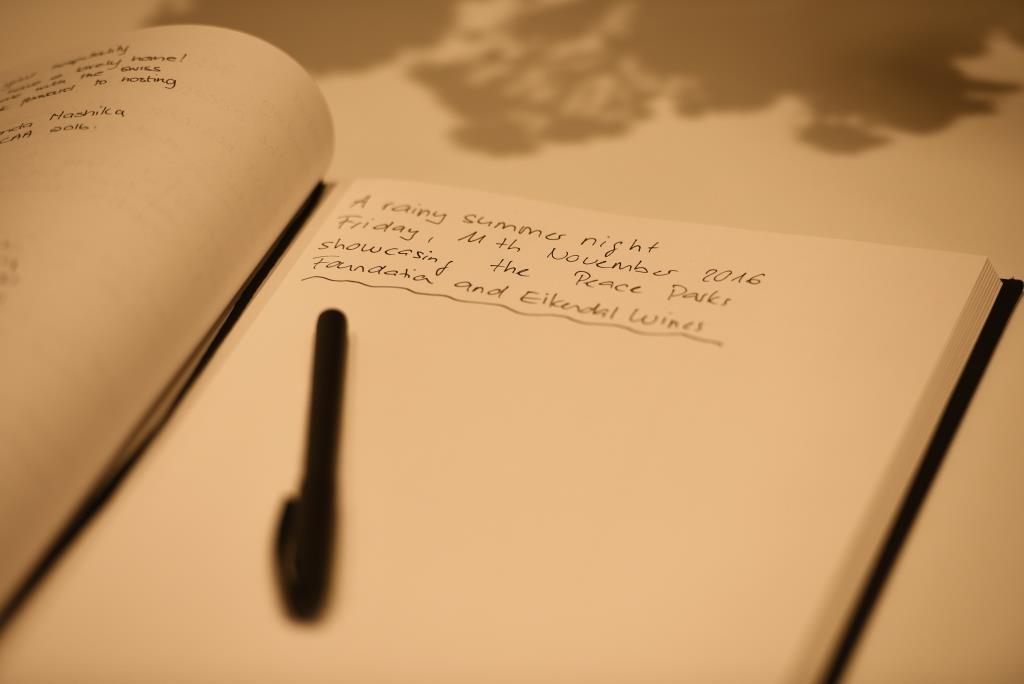 hospitality
have a lovely home!
with the swiss
forward to hosting
Hashika
2016.
A rainy summer night
Friday, 11th November 2016
showcasing the Peace Parks
Foundation and Eikendal Wines